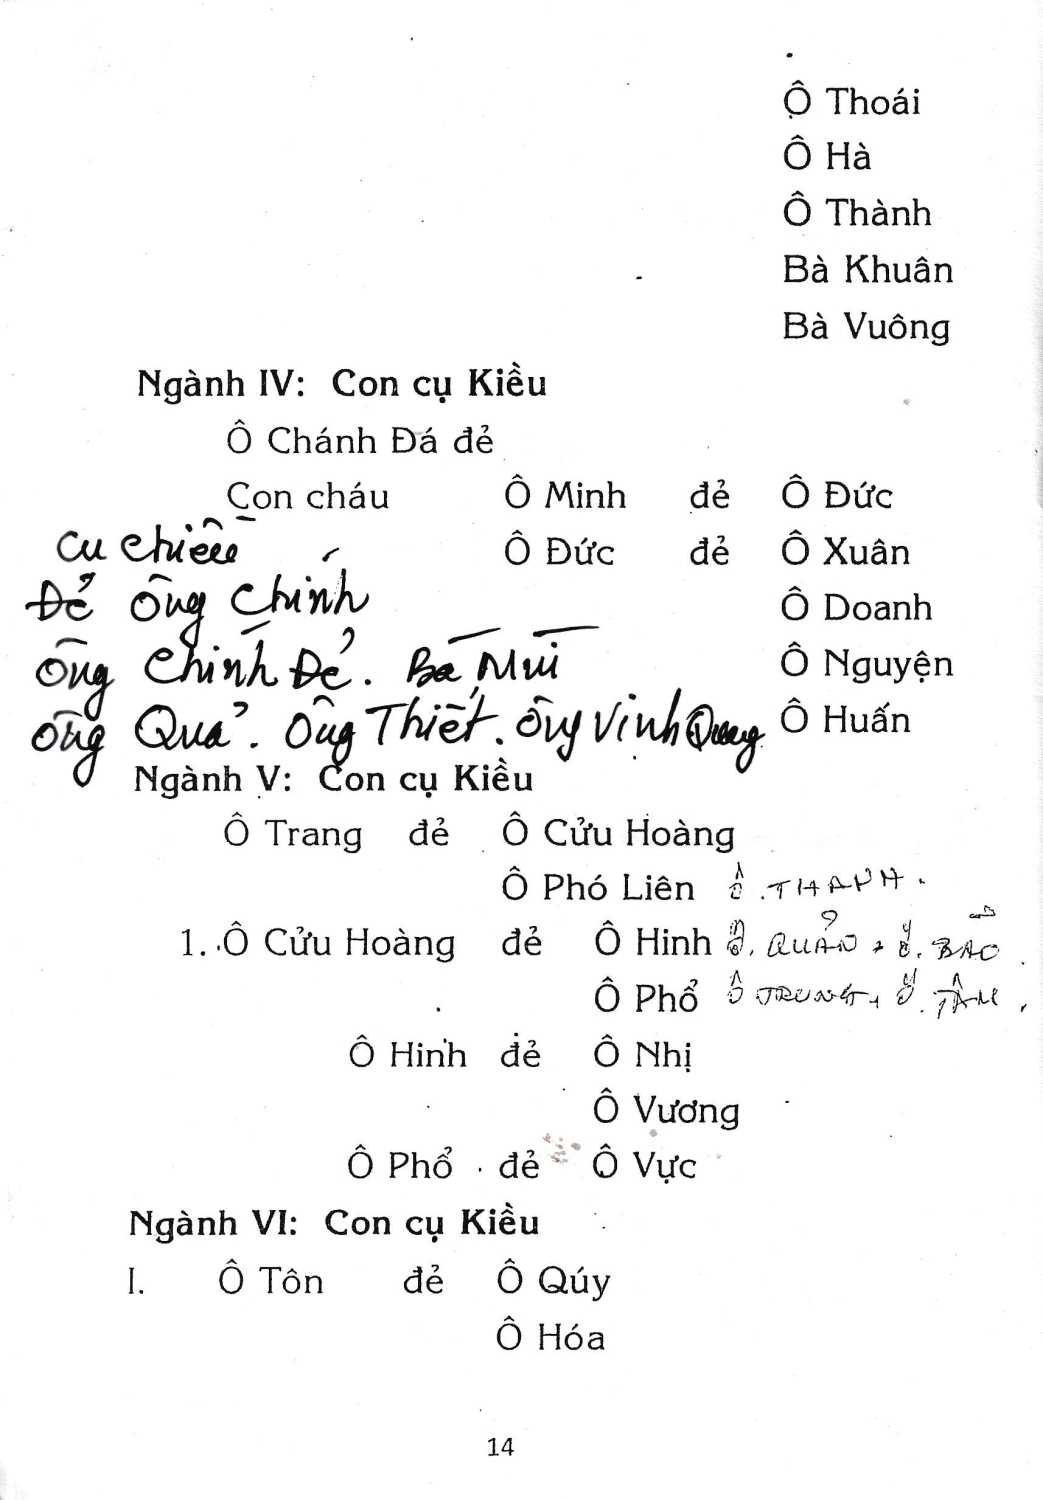 Ô Thoái
Ô Hà
Ô Thành
Bà Khuân
Bà Vuông
Ngành IV: Con cụ Kiều
Ô Chánh Đá đẻ
Con cháu Ô Minh đẻ Ô Đức
Ô Đức đẻ Ô Xuân
Cu chiều
Đẻ ông Chính
Ô Doanh
ông Chính Đẻ. Bà Mùi
Ô Nguyện
ông Quả. ông Thiết. ông Vinh Quang
Ô Huấn
Ngành V: Con cụ Kiều
Ô Trang đẻ Ô Cửu Hoàng
Ô Phó Liên Ô. THANH.
1. Ô Cửu Hoàng đẻ Ô Hinh Ô. QUẢN, Ô. BẢO
Ô Phổ Ô TRUNG, Ô. TÂM
Ô Hinh đẻ Ô Nhị
Ô Vương
Ô Phổ đẻ Ô Vực
Ngành VI: Con cụ Kiều
I. Ô Tôn đẻ Ô Qúy
Ô Hóa
14